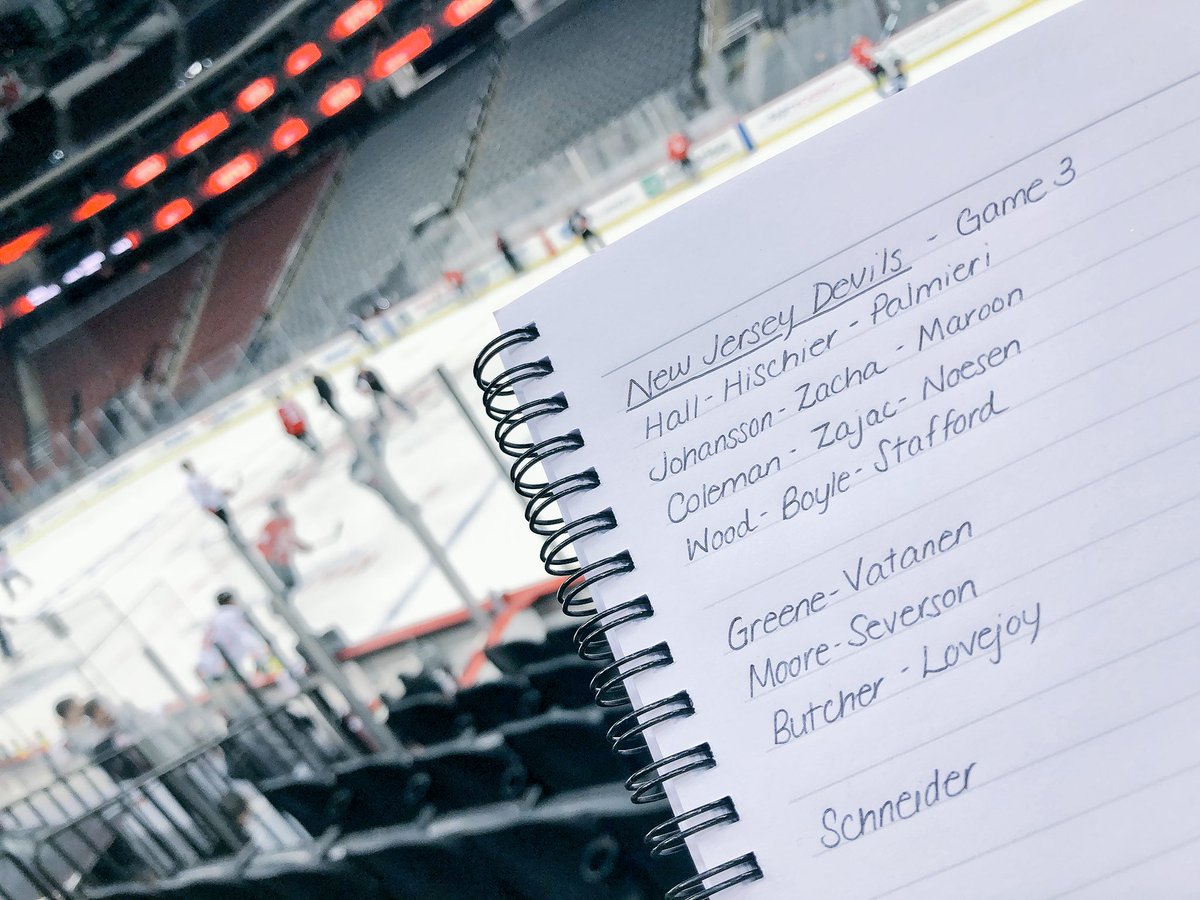 New Jersey Devils - Game 3
Hall - Hischier - Palmieri
Johansson - Zacha - Maroon
Coleman - Zajac - Noesen
Wood - Boyle - Stafford
Greene - Vatanen
Moore - Severson
Butcher - Lovejoy
Schneider